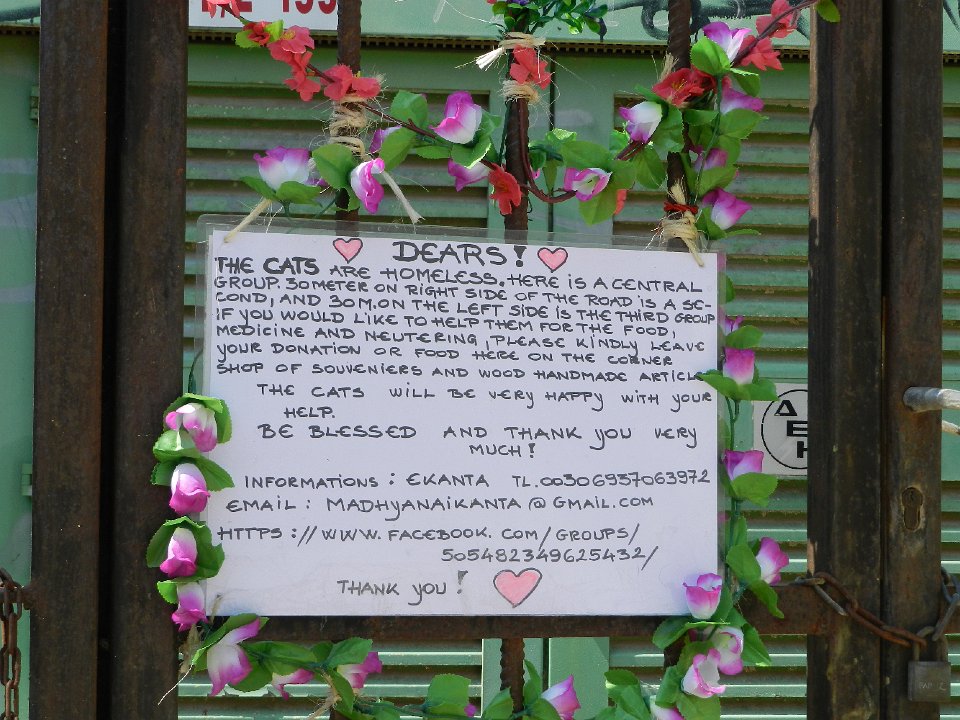 DEARS!
THE CATS ARE HOMELESS. HERE IS A CENTRAL
GROUP. 30METER ON RIGHT SIDE OF THE ROAD IS A SE-
COND, AND 30M. ON THE LEFT SIDE IS THE THIRD GROUP
IF YOU WOULD LIKE TO HELP THEM FOR THE FOOD,
MEDICINE AND NEUTERING, PLEASE KINDLY LEAVE
YOUR DONATION OR FOOD HERE ON THE CORNER
SHOP OF SOUVENIERS AND WOOD HANDMADE ARTICLE
THE CATS WILL BE VERY HAPPY WITH YOUR
HELP.
BE BLESSED AND THANK YOU VERY
MUCH!
INFORMATIONS : EKANTA TL. 00306937063972
EMAIL : MADHYANAIKANTA@GMAIL.COM
HTTPS://WWW.FACEBOOK.COM/GROUPS/
505482349625432/
THANK YOU!
ΔΕΗ